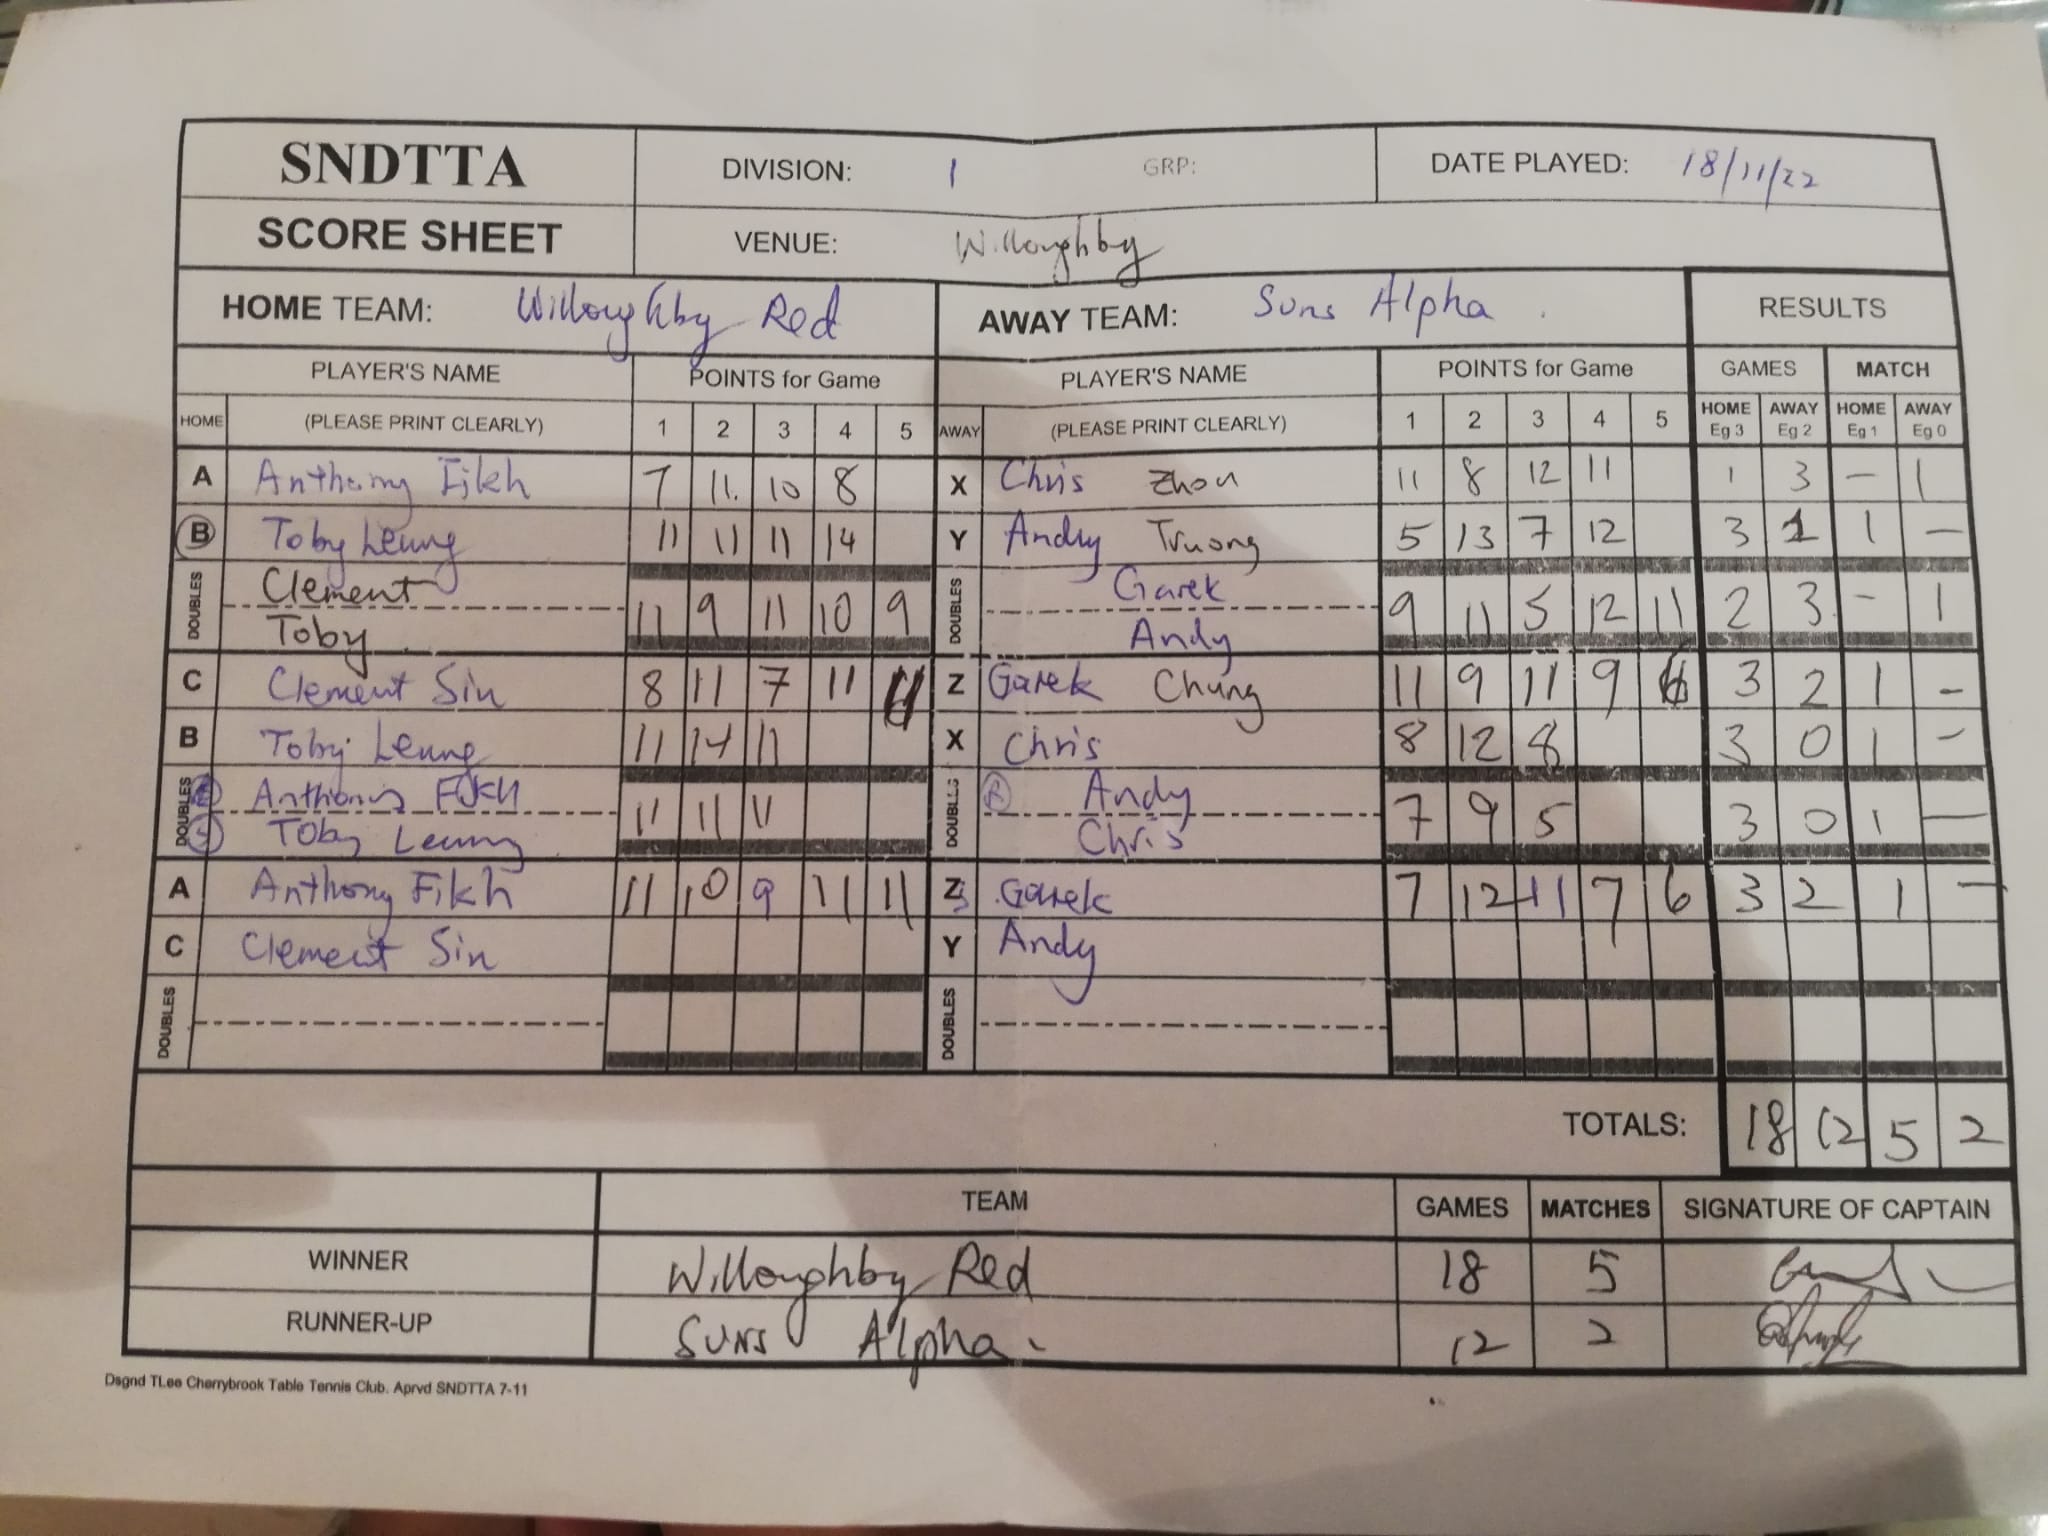 SNDTTA DIVISION: 1 GRP: DATE PLAYED: 18/11/22
SCORE SHEET VENUE: Willoughby
HOME TEAM: Willoughby Red AWAY TEAM: Suns Alpha . RESULTS
PLAYER'S NAME POINTS for Game PLAYER'S NAME POINTS for Game GAMES MATCH
HOME (PLEASE PRINT CLEARLY) 1 2 3 4 5 AWAY (PLEASE PRINT CLEARLY) 1 2 3 4 5 HOME Eg 3 AWAY Eg 2 HOME Eg 1 AWAY Eg 0
A Anthony Fikh 7 11. 10 8 X Chris Zhou 11 8 12 11 1 3 – 1
B Toby Leung 11 11 11 14 Y Andy Truong 5 13 7 12 3 1 1 –
DOUBLES Clement DOUBLES Garek
Toby 11 9 11 10 9 Andy 9 11 5 12 11 2 3 – 1
C Clement Sin 8 11 7 11 11 Z Garek Chung 11 9 11 9 6 3 2 1 –
B Toby Leung 11 14 11 X Chris 8 12 8 3 0 1 –
DOUBLES Anthony Fikh DOUBLES R Andy
S Toby Leung 11 11 11 Chris 7 9 5 3 0 1 –
A Anthony Fikh 11 10 9 11 11 Z Garek 7 12 11 7 6 3 2 1 –
C Clement Sin Y Andy
DOUBLES DOUBLES
TOTALS: 18 12 5 2
TEAM GAMES MATCHES SIGNATURE OF CAPTAIN
WINNER Willoughby Red 18 5
RUNNER-UP Suns Alpha. 12 2
Dsgnd TLee Cherrybrook Table Tennis Club. Aprvd SNDTTA 7-11